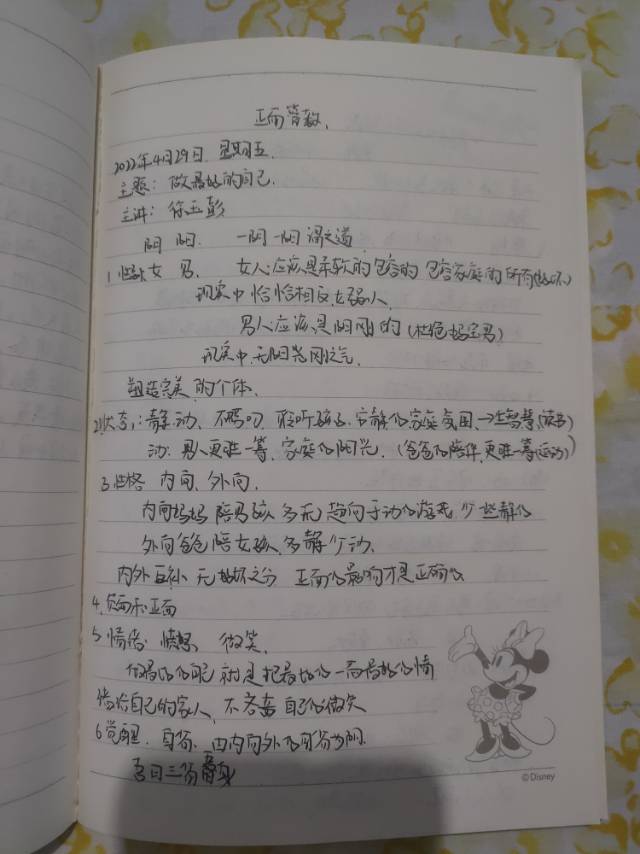 正面管教、
2022年4月29日 星期五.
主题：做最好的自己.
主讲：徐玉彭
阴阳. 一阴一阳谓之道
1.性别 女 男、 女人:应该是柔软的包容的 包容家庭的所有(好坏)
现实中恰恰相反,女强人.
男人应该是阳刚的(杜绝妈宝男)
现实中,无阳光阳刚之气.
塑造完美的个体.
2.状态：静 动、不唠叨 聆听孩子.安静的家庭氛围→生智慧(读书)
动：男人更胜一筹、家庭的阳光.(爸爸的陪伴,更胜一筹(运动))
3.性格 内向、外向.
内向妈妈陪男孩 多玩趋向于动的游戏 少些静的
外向爸爸陪女孩,多静少动.
内外互补 无好坏之分 正面的影响才是正确的
4.负面和正面
5.情绪: 愤怒、微笑.
做最好的自己 就是把最好的一面最好的情
绪给自己的家人,不吝啬自己的微笑
6.觉醒、自省. 由内向外的自省为阴.
吾日三省吾身
©Disney